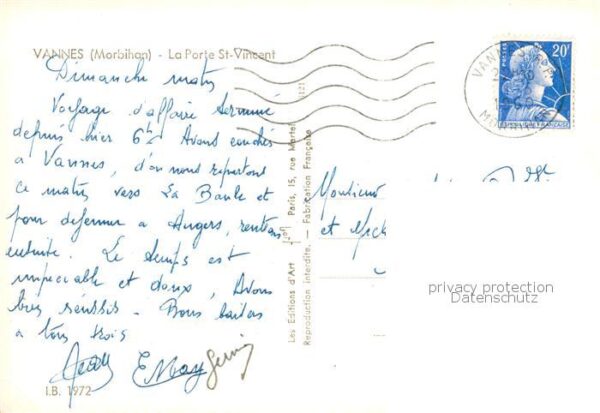 VANNES (Morbihan) - La Porte St-Vincent
Dimanche matin
Voyage d'affaire terminé
depuis hier 6h Avons couchés
a Vannes, d'ou nous repartons
ce matin vers La Baule et
pour dejeuner a Angers, rentrons
ensuite. Le temps est
impeccable et doux, Avons
bien réussis - Bons baisers
a tous trois
I.B. 1972
Les Editions d'Art Paris, 15, rue Martel
Reproduction interdite. - Fabrication Française
20F
POSTES
VANNES
Monsieur
et
privacy protection
Datenschutz